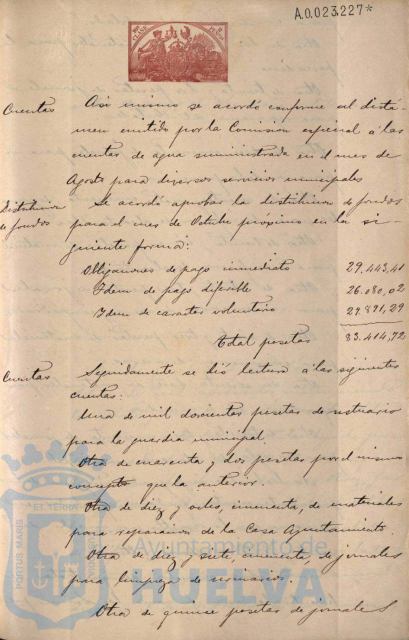 A.0.023.227*
Cuentas
Asi mismo se acordó conforme al dictá-
men emitido por la Comision especial á las
cuentas de agua suministrada en el mes de
Agosto para diversos servicios municipales
Distribucion
de fondos
Se acordó aprobar la distribucion de fondos
para el mes de Octubre próximo en la si-
guiente forma:
Obligaciones de pago inmediato 29.443,41
Idem de pago diferible 26.080,02
Idem de caracter voluntario 27.891,29
Total pesetas 83.414,72
Cuentas
Seguidamente se dió lectura á las siguientes
cuentas:
Una de mil doscientas pesetas de vestuario
para la guardia municipal.
Otra de cuarenta y dos pesetas por el mismo
concepto que la anterior.
Otra de diez y ocho, cincuenta, de materiales
para reparacion de la Casa Ayuntamiento.
Otra de diez y siete, cincuenta, de jornales
para limpieza de
Otra de quince pesetas de jornales
PORTUS MARIS
ET TERRAE
Ayuntamiento de
HUELVA